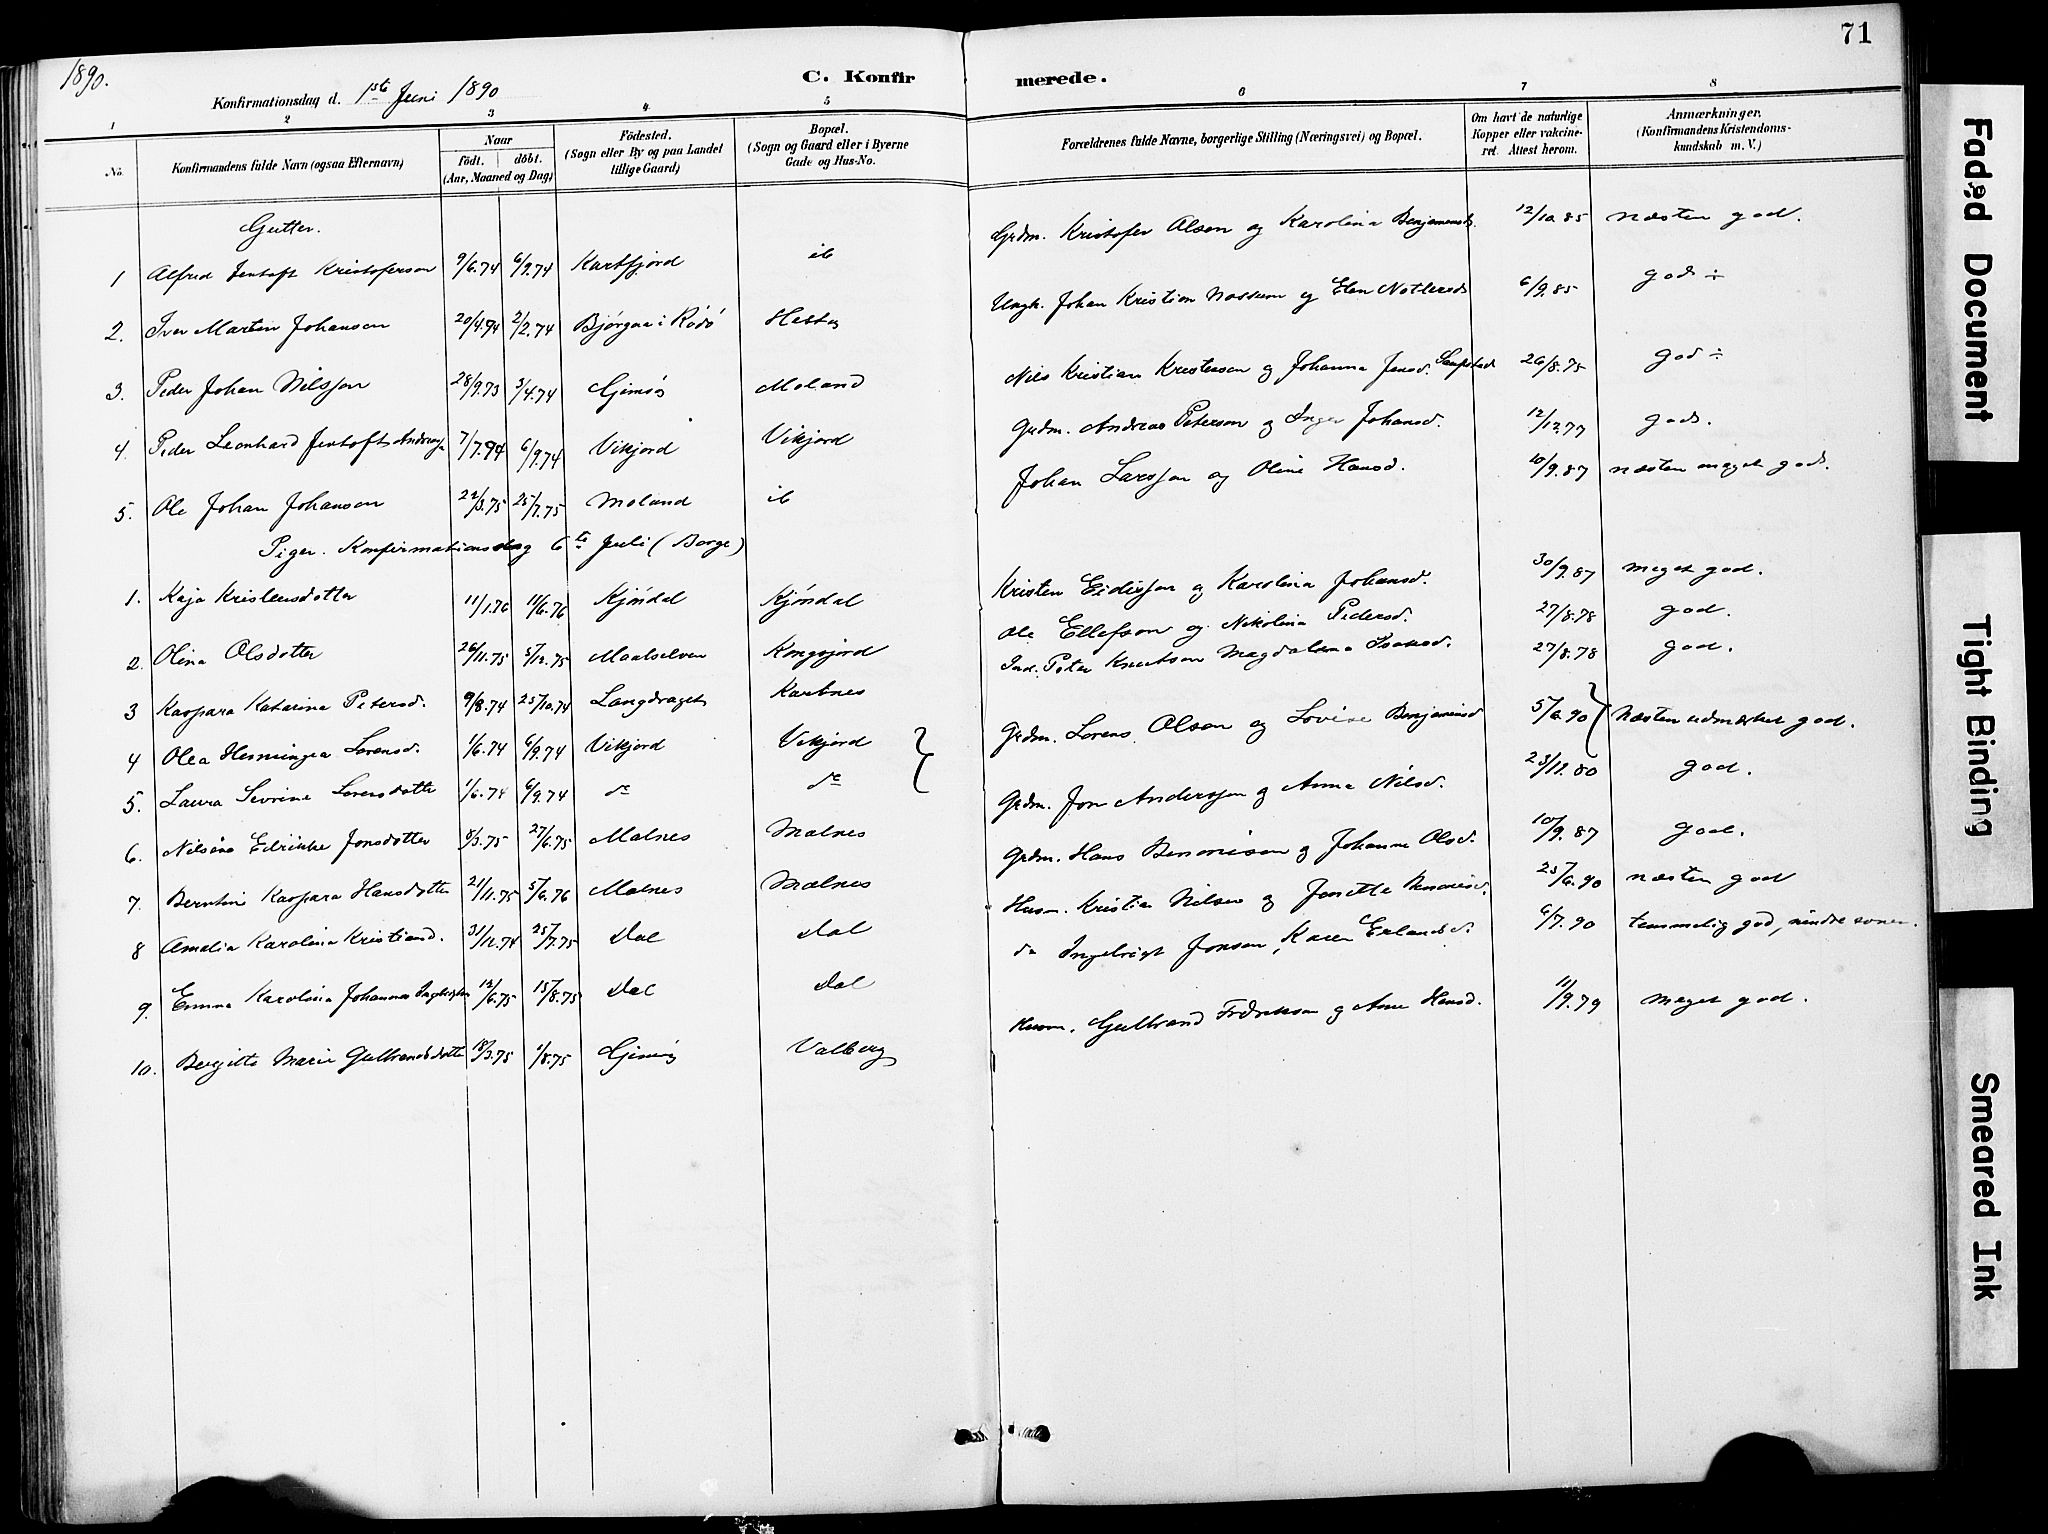 71
1890.
C. Konfirmerede.
Konfirmationsdag d. 1ste Juni 1890
1 2 3 4 5 6 7 8
No. Konfirmandens fulde Navn (ogsaa Efternavn) Naar født. døbt. (Aar, Maaned og Dag) Fødested. (Sogn eller By og paa Landet tillige Gaard) Bopæl. (Sogn og Gaard eller i Byerne Gade og Hus-No. Forældrenes fulde Navne, borgerlige Stilling (Næringsvei) og Bopæl. Om havt de naturlige Kopper eller vakcineret. Attest herom. Anmærkninger. (Konfirmandens Kristendomskundskab m. V.)
Gutter.
1 Alfred Jentoft Kristoferson 9/6.74 6/9.74 Kartfjord ib Grdm. Kristofer Olsen og Karolina Benjaminsd. 12/10.85 næsten god.
2. Iver Martin Johanson 20/4.74 2/2.74 Bjørgaa i Rödö Hestø Ungk. Johan Kristian og Elen 6/9.85 god ÷
3. Peder Johan Nilsson 28/9.73 3/4.74 Gimsø Moland Nils Kristian Kristensen og Johanna Jensd. 26/8.75 god ÷
4. Peder Leonhard Jentoft 7/7.74 6/9.74 Vikjord Vikjord Grdm. Andreas Peterson og Inger Johansd. 12/12.77 god.
5. Ole Johan Johanson 22/3.75 25/7.75 Moland ib Johan Larsson og Oline Hansd. 10/9.87 næsten meget god.
Piger. Konfirmationsdag 6te Juli (Borge)
1. Kaja Kristensdotter 11/1.76 11/6.76 Kjöndal Kjöndal Kristen Eidisson og Karolina Johansd. 30/9.87 meget god.
2. Olina Olsdotter 26/11.75 5/12.75 Maalselven Kongsjord Ole Ellefson og Nikolina Pedersd. 27/8.78 god.
3 Kaspara Katarina Petersd. 9/8.74 25/10.74 Langdraget Kartnes Ind. Peter Knutson Magdalena Isaksd. 27/8.78 god.
4 Olea Henningea Lorensd. 1/6.74 6/9.74 Vikjord Vikjord } Grdm. Lorens Olsen og Lovise Benjaminsd 5/6.90 } Næsten udmerket god.
5. Laura Sevrine Lorensdotter 1/6.74 6/9.74 do do
6. Nilsina Edrikke Jonsdotter 8/3.75 27/6.75 Malnes Malnes Grdm. Jon Andersson og Anna Nilsd. 23/12.80 god.
7. Berntine Kaspara Hansdotter 21/11.75 5/6.76 Malnes Malnes Grdm. Hans Benonison og Johanna Olsd. 10/9.87 god.
8 Amalia Karolina Kristiansd. 31/12.74 25/7.75 Dal Dal Husm. Kristian Nilsen og Jonette Benonisd. 25/6.90 næsten god
9. Emma Karolina Johanna 12/6.75 15/8.75 Dal Dal do Ingebrigt Jonson, Karen Erlandsd. 6/7.90 temmelig god, mindre
10. Bergitte Marie Gulbrandsdotter 18/3.75 1/8.75 Gimsø Valberg Husm. Gulbrand Fredrikson og Ane Hansd. 11/9.79 meget god.
Faded Document
Tight Binding
Smeared Ink